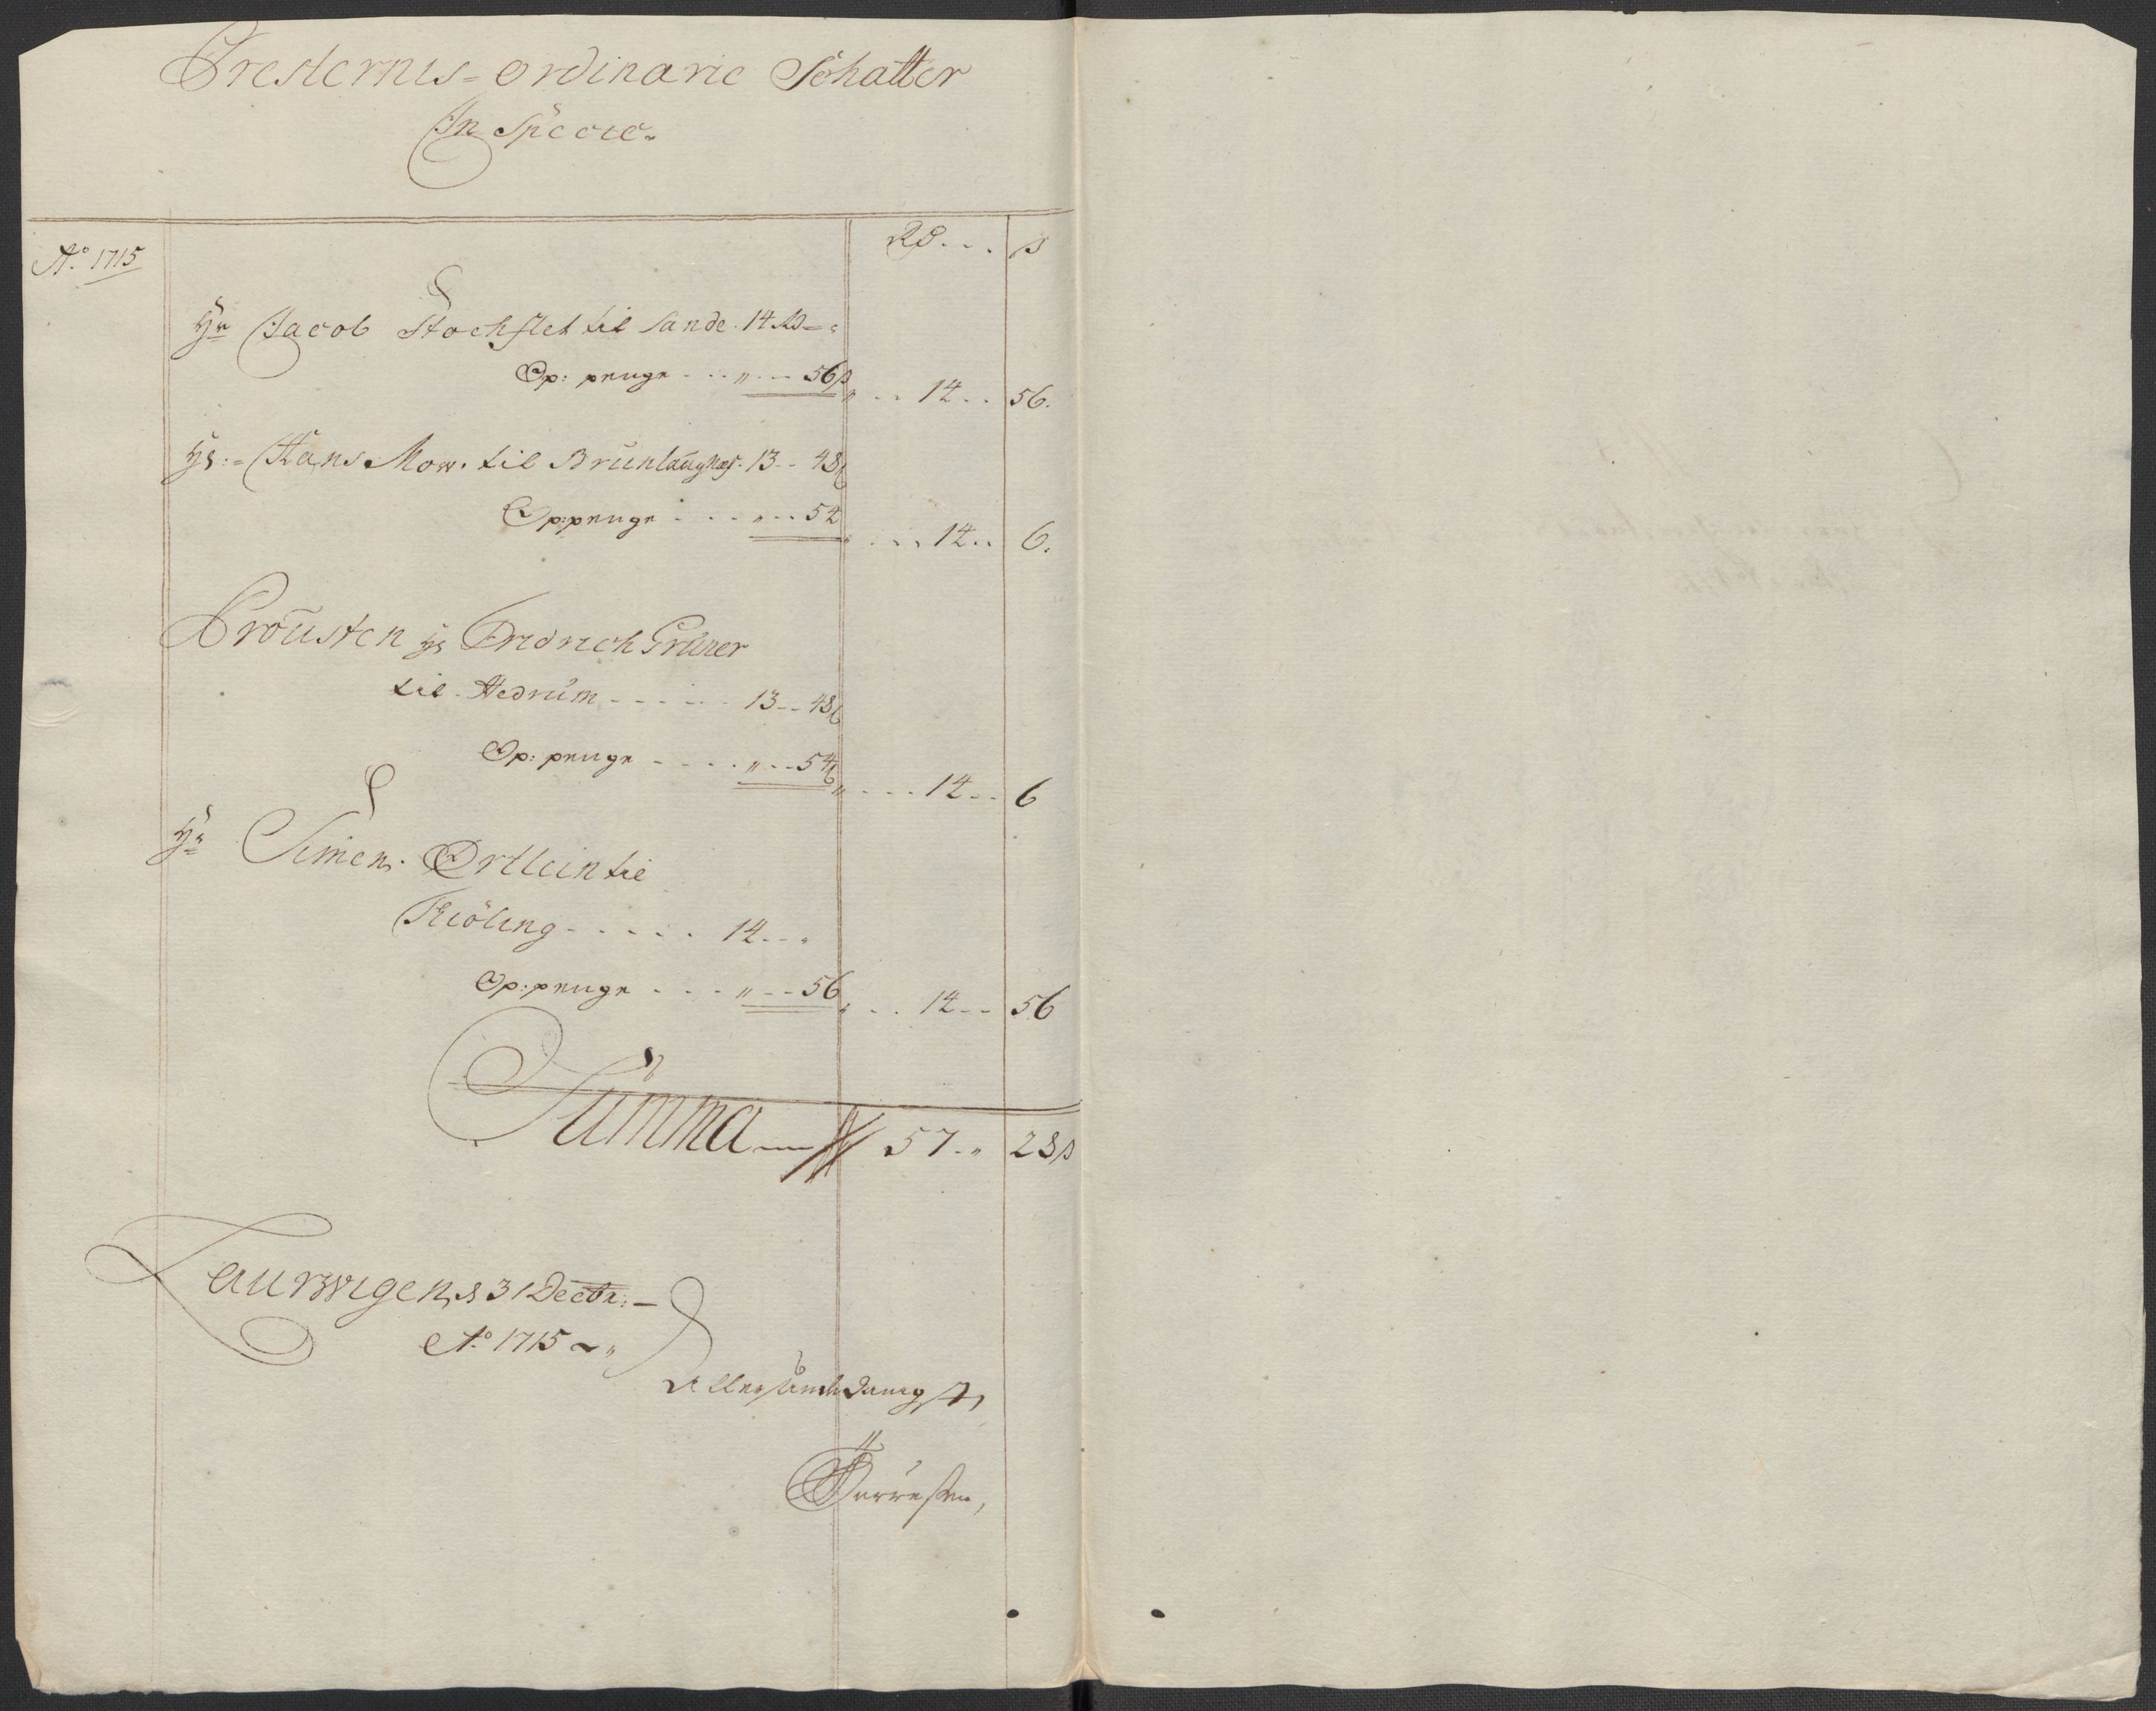 Presternis= ordinarie Schatter
In Specie.
Ao. 1715
Rd... ß
Hr Jacob Stochflet til Sande. 14 Rd - "
Op: penge - .. " -- 56ß " .. 14 .. 56.
Hr:= Hans Mow. til Brünlaügnes. 13 -- 48
Op:penge - . . " .. 54 " ... 14 .. 6.
Proústen Hr Fridrich Grüner
til Hedrúm - - - - - - 13 -- 48
Op: penge - - - . " -- 54 " ... 14 -- 6
Hr Simen. Ortlein til
Kiöling - . - . . 14 -- "
Op:penge . - . - " -- 56 " . . 14 -- 56
Summa — 57 . " 28ß
Laurwigen, d 31 Decbr: —
Ao. 1715 ~ "
Allerunderdanigst,